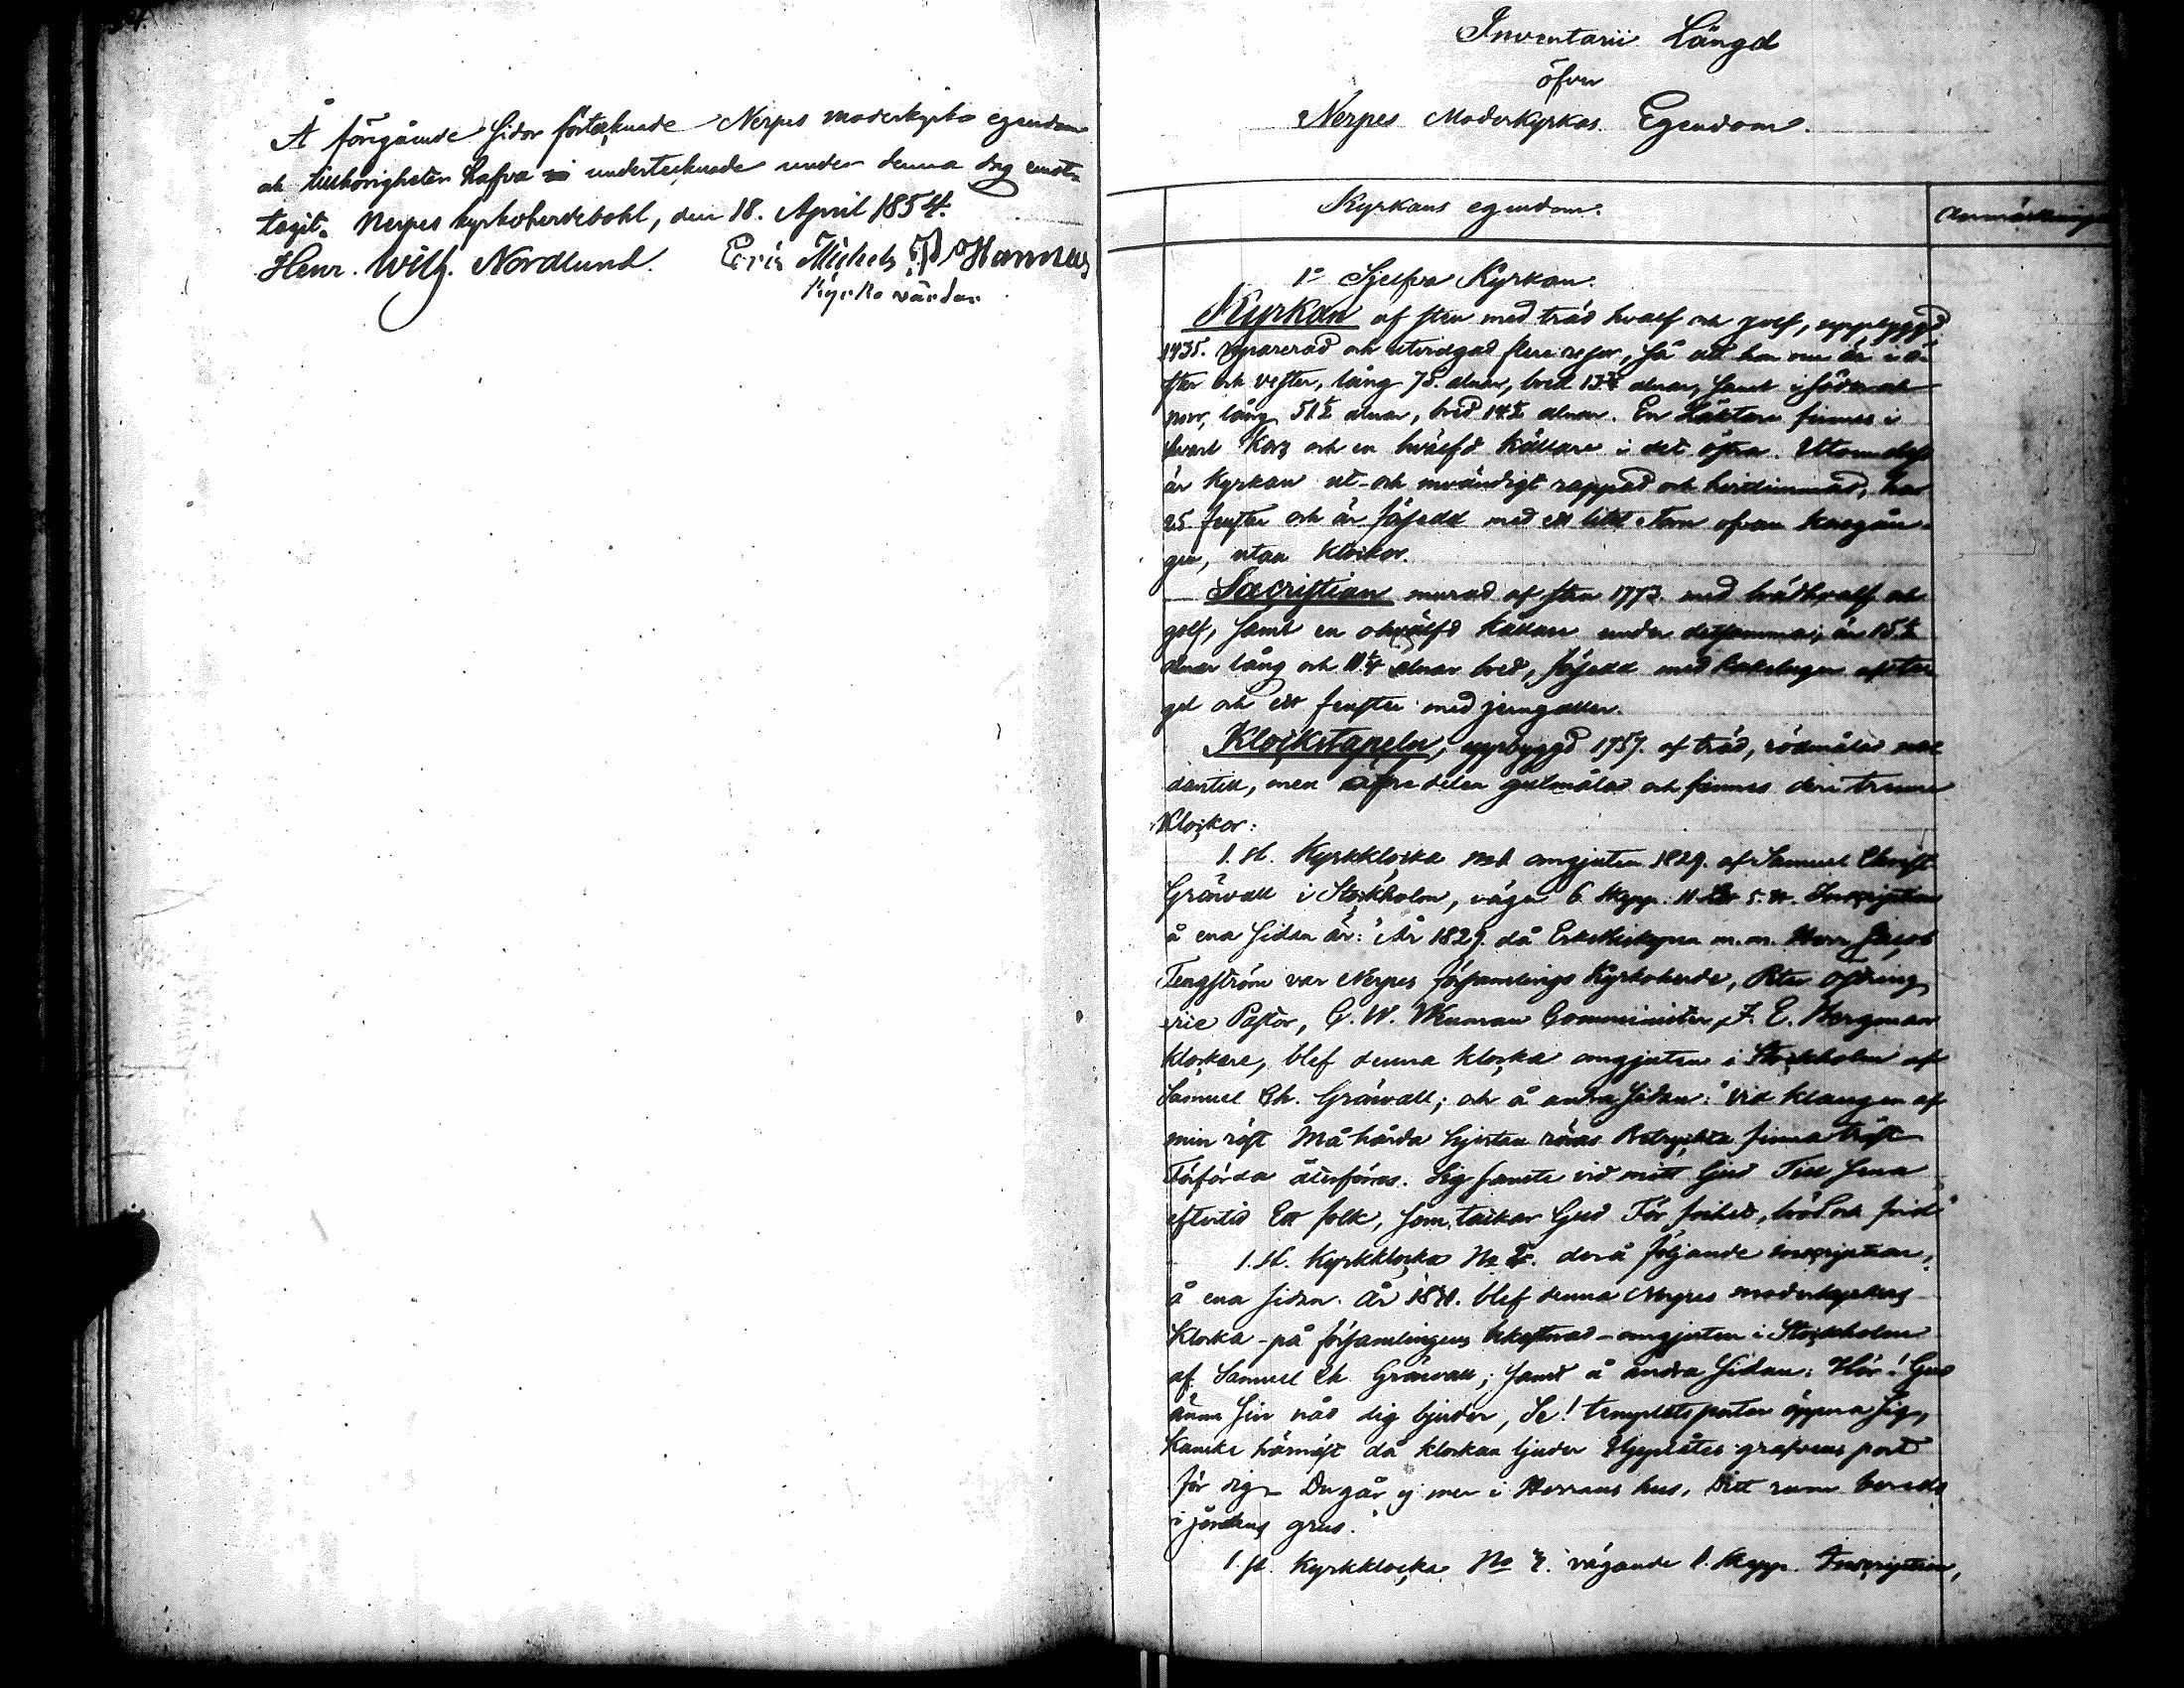 Å föregående sidor förtecknade Nerpes moderkyrko egendom
och tillhörigheter hafva undertecknade under denna dag emot-
tagit. Nerpes kyrkoherdebohl, den 18. April 1854.
Henr. Wilh. Nordlund. Eric Michels
Kyrko värdar
Inventarii Längd
öfver
Nerpes Moderkyrkas Egendom.
Kyrkans egendom.
Anmärkningar
1o Sjelfva Kyrkan.
Kyrkan af sten med träd hvalf och golf, uppbyggd
1435. reparerad och utvidgad flere resor, så att hon nu är i ö-
ster och vester, lång 75. alnar, bred alnar, samt i söder och
norr, lång 51 1/2 alnar, bred 14 1/2 alnar. En Läktare finnes i
hvart Kors och en hvälfd källare i det östra. Utomdess
är Kyrkan ut- och invändigt rappad och hvitlimmad, har
25 fenster och är försedd med ett litet torn ofvan korsgån-
gen, utan klockor.
Sacristian murad af sten 1773. med trädhvalf och
golf, samt en ohvälfd källare under detsamma; är 15 1/2
alnar lång och alnar bred, försedd med kakelugn af te-
gel och ett fenster med jerngaller.
Klockstapeln, uppbyggd 1757. af träd, rödmålad
dertill, men öfre delen gulmålad och finnes deri trenne
Klockor:
1. st. Kyrkklocka No 1. omgjuten 1829. af Samuel Christ.
Gråwall i Stockholm, väger 6. Skepp. 11. 5. Inscription
å ena sidan är: "År 1829. då Erkebiskopen m.m. Herr Jacob
Tengström var Nerpes församlings Kyrkoherde, Peter
vice Pastor, G. W. Wenman Comminister, J. E. Bergman
klockare, blef denna klocka omgjuten i Stockholm af
Samuel Ch. Gråwall; och å andra sidan: "Vid klangen af
min röst Må hårda hjertan röras Betryckta finna tröst
Förförda återföras. Sig samle vid mitt ljud Till sena
eftertid Ett folk, som tackar Gud För frihet, bröd och frid"
1. st. Kyrkklocka No 2. derå följande inscription,
å ena sidan. År blef denna Nerpes moderkyrkas
Klocka - på församlingens bekostnad - omgjuten i Stockholm
af Samuel Ch. Gråwall; samt å andra sidan: Hör! Gud
ännu sin nåd dig bjuder, Se! templets portar öppna sig,
Kanske härnäst då klockan ljuder Upplåtes grafvens port
för dig - Du går ej mer i Herrans hus, Ditt rum bereds
i jordens grus."
1. st. Kyrkklocka No 3. vägande 1. Skepp. Inscription,